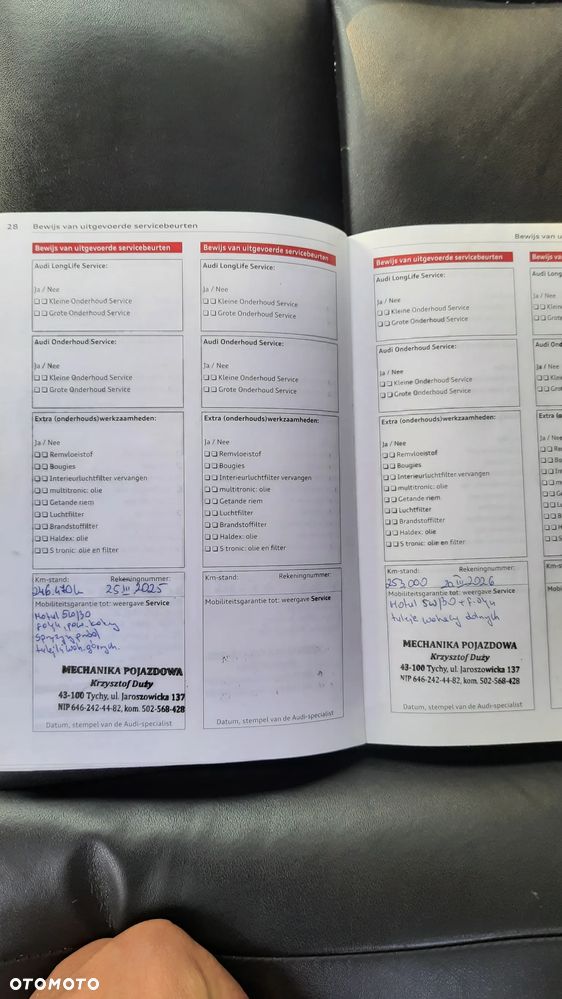 28 Bewijs van uitgevoerde servicebeurten
Bewijs van uitgevoerde servicebeurten
Audi LongLife Service:
Ja / Nee
Kleine Onderhoud Service
Grote Onderhoud Service
Audi Onderhoud Service:
Ja / Nee
Kleine Onderhoud Service
Grote Onderhoud Service
Extra (onderhouds)werkzaamheden:
Ja / Nee
Remvloeistof
Bougies
Interieurluchtfilter vervangen
multitronic: olie
Getande riem
Luchtfilter
Brandstoffilter
Haldex: olie
S tronic: olie en filter
Km-stand: Rekeningnummer:
246.470 25 III 2025
Mobiliteitsgarantie tot: weergave Service
Motul 5W/30
sprężyny przód
MECHANIKA POJAZDOWA
Krzysztof Duży
43-100 Tychy, ul. Jaroszowicka 137
NIP 646-242-44-82, kom. 502-568-428
Datum, stempel van de Audi-specialist
Bewijs van uitgevoerde servicebeurten
Audi LongLife Service:
Ja / Nee
Kleine Onderhoud Service
Grote Onderhoud Service
Audi Onderhoud Service:
Ja / Nee
Kleine Onderhoud Service
Grote Onderhoud Service
Extra (onderhouds)werkzaamheden:
Ja / Nee
Remvloeistof
Bougies
Interieurluchtfilter vervangen
multitronic: olie
Getande riem
Luchtfilter
Brandstoffilter
Haldex: olie
S tronic: olie en filter
Km-stand: Rekeningnummer:
Mobiliteitsgarantie tot: weergave Service
Datum, stempel van de Audi-specialist
Bewijs van u
Bewijs van uitgevoerde servicebeurten
Audi LongLife Service:
Ja / Nee
Kleine Onderhoud Service
Grote Onderhoud Service
Audi Onderhoud Service:
Ja / Nee
Kleine Onderhoud Service
Grote Onderhoud Service
Extra (onderhouds)werkzaamheden:
Ja / Nee
Remvloeistof
Bougies
Interieurluchtfilter vervangen
multitronic: olie
Getande riem
Luchtfilter
Brandstoffilter
Haldex: olie
S tronic: olie en filter
Km-stand: Rekeningnummer:
253.000 2026
Mobiliteitsgarantie tot: weergave Service
Motul 5W/30 + f. oleju
tuleje wahaczy dolnych
MECHANIKA POJAZDOWA
Krzysztof Duży
43-100 Tychy, ul. Jaroszowicka 137
NIP 646-242-44-82, kom. 502-568-428
Datum, stempel van de Audi-specialist
Bewijs va
Audi Long
Ja / Nee
Klein
Grote
Audi Ond
Ja / Nee
Klei
Gro
Extra (o
Ja / Nee
Km-sta
Mobili
OTOMOTO